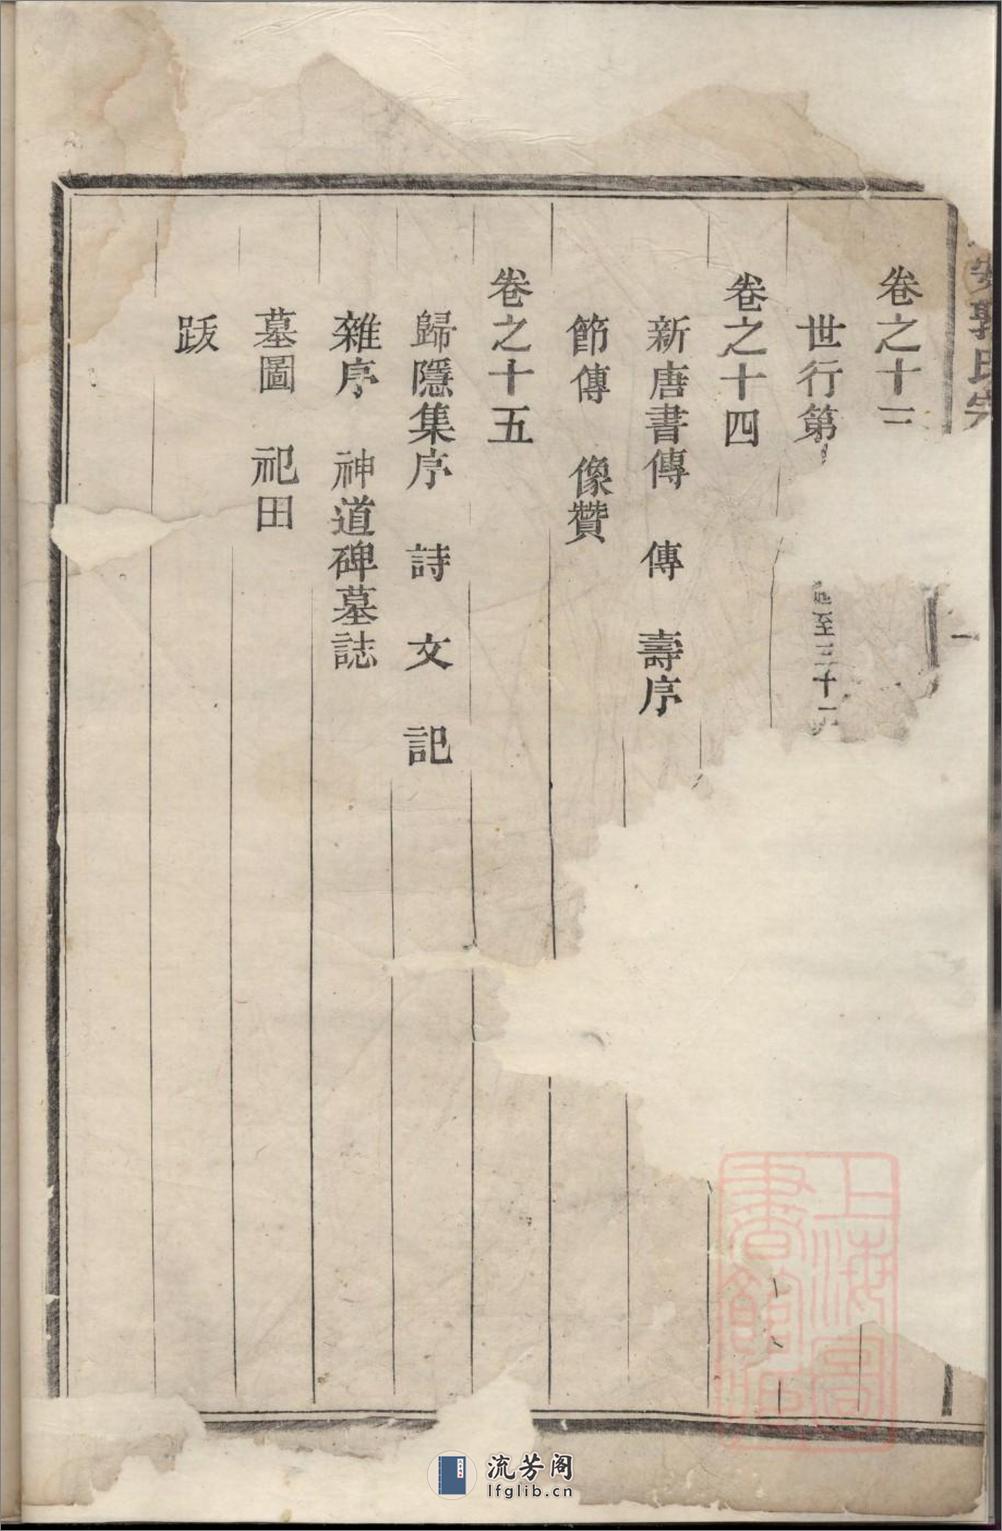 郭氏宗
一
卷之十三
世行第
至三十二
卷之十四
新唐書傳　傳　壽序
節傳　像贊
卷之十五
歸隱集序　詩　文　記
雜序　神道碑墓誌
墓圖　祀田
跋
上海圖書館藏
流芳阁
lfglib.cn